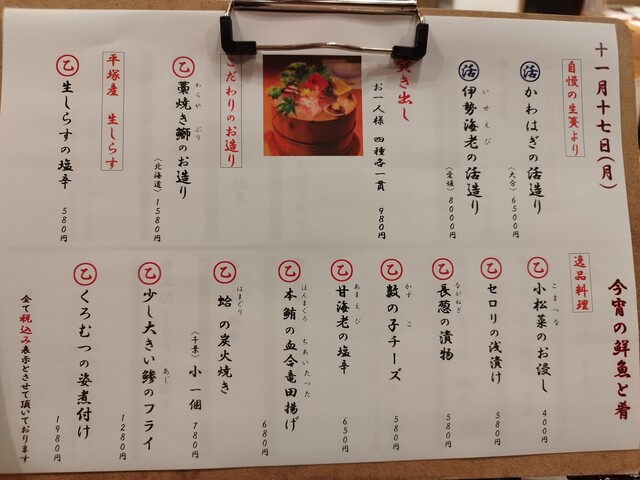 十一月十七日(月)
今宵の鮮魚と肴
自慢の生簀より
活 かわはぎの活造り
(大分) 6500円
活 伊勢海老の活造り
いせえび
(愛媛) 8000円
突き出し
お一人様 四種各一貫 980円
こだわりのお造り
乙 藁焼き鰤のお造り
わらや ぶり
(北海道) 1580円
平塚産 生しらす
乙 生しらすの塩辛 580円
逸品料理
乙 小松菜のお浸し 400円
こまつな
乙 セロリの浅漬け 580円
乙 長葱の漬物 580円
ながねぎ
乙 数の子チーズ 580円
かず こ
乙 甘海老の塩辛 650円
あまえび
乙 本鮪の血合竜田揚げ 680円
ほんまぐろ ちあいたつた
乙 蛤 の炭火焼き
はまぐり
(千葉) 小一個 780円
乙 少し大きい鯵のフライ 1280円
あじ
乙 くろむつの姿煮付け 1980円
全て税込み表示とさせて頂いております